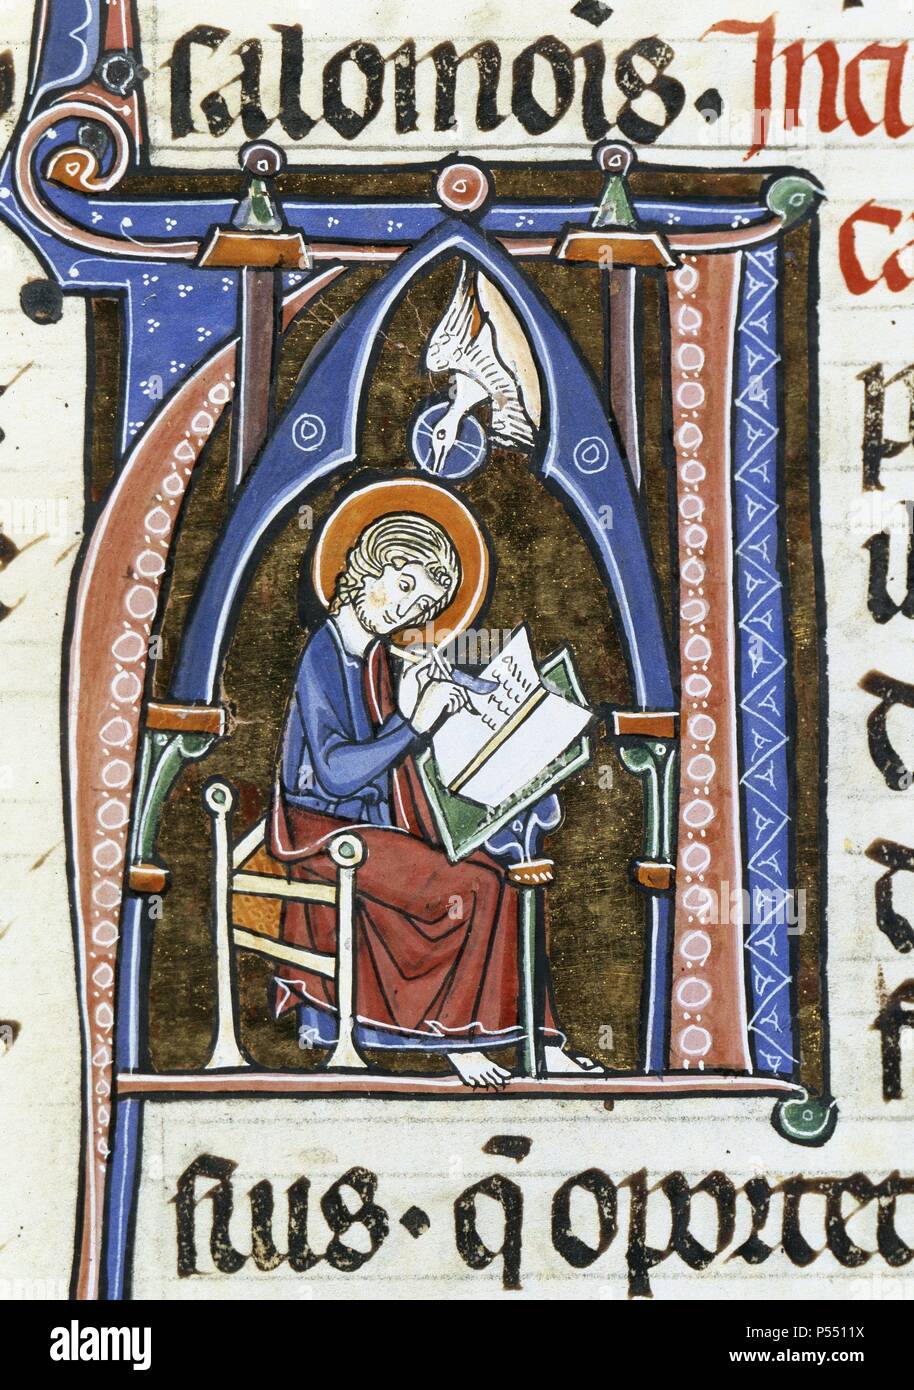 salomois. Inci
ca
p
u
d
d
f
sius · q̄ oportet
alamy
Image ID: P5511X
www.alamy.com